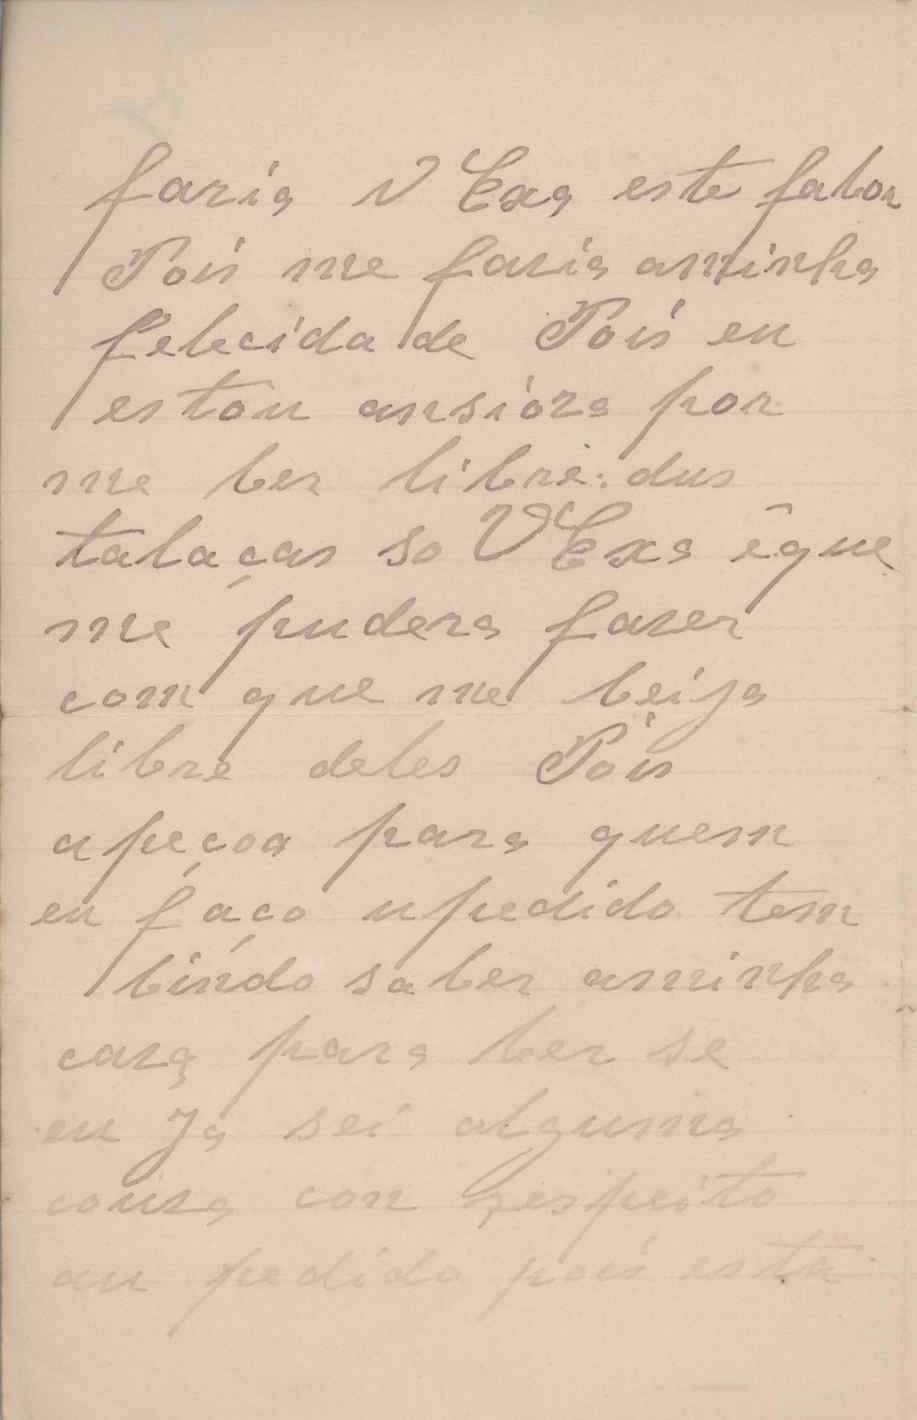 faria V Exa este fabor
Pois me faria aminha
felecidade Pois eu
estou ansioza por
me ber libre dus
talaças so V Exa êque
me pudera faser
com que me beija
libre deles Pois
apeçoa para quem
eu faço upedido tem
bindo saber aminha
cara para ber se
eu Ja sei alguma
couza con respeito
au pedido pois esta